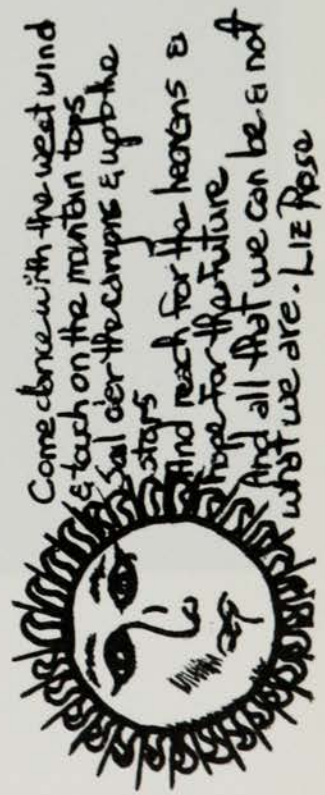 Come dance with the west wind
& touch on the mountain tops
Sail oer the canyons & up to the
stars
And reach for the heavens &
hope for the future
And all that we can be & not
what we are. Liz Rose